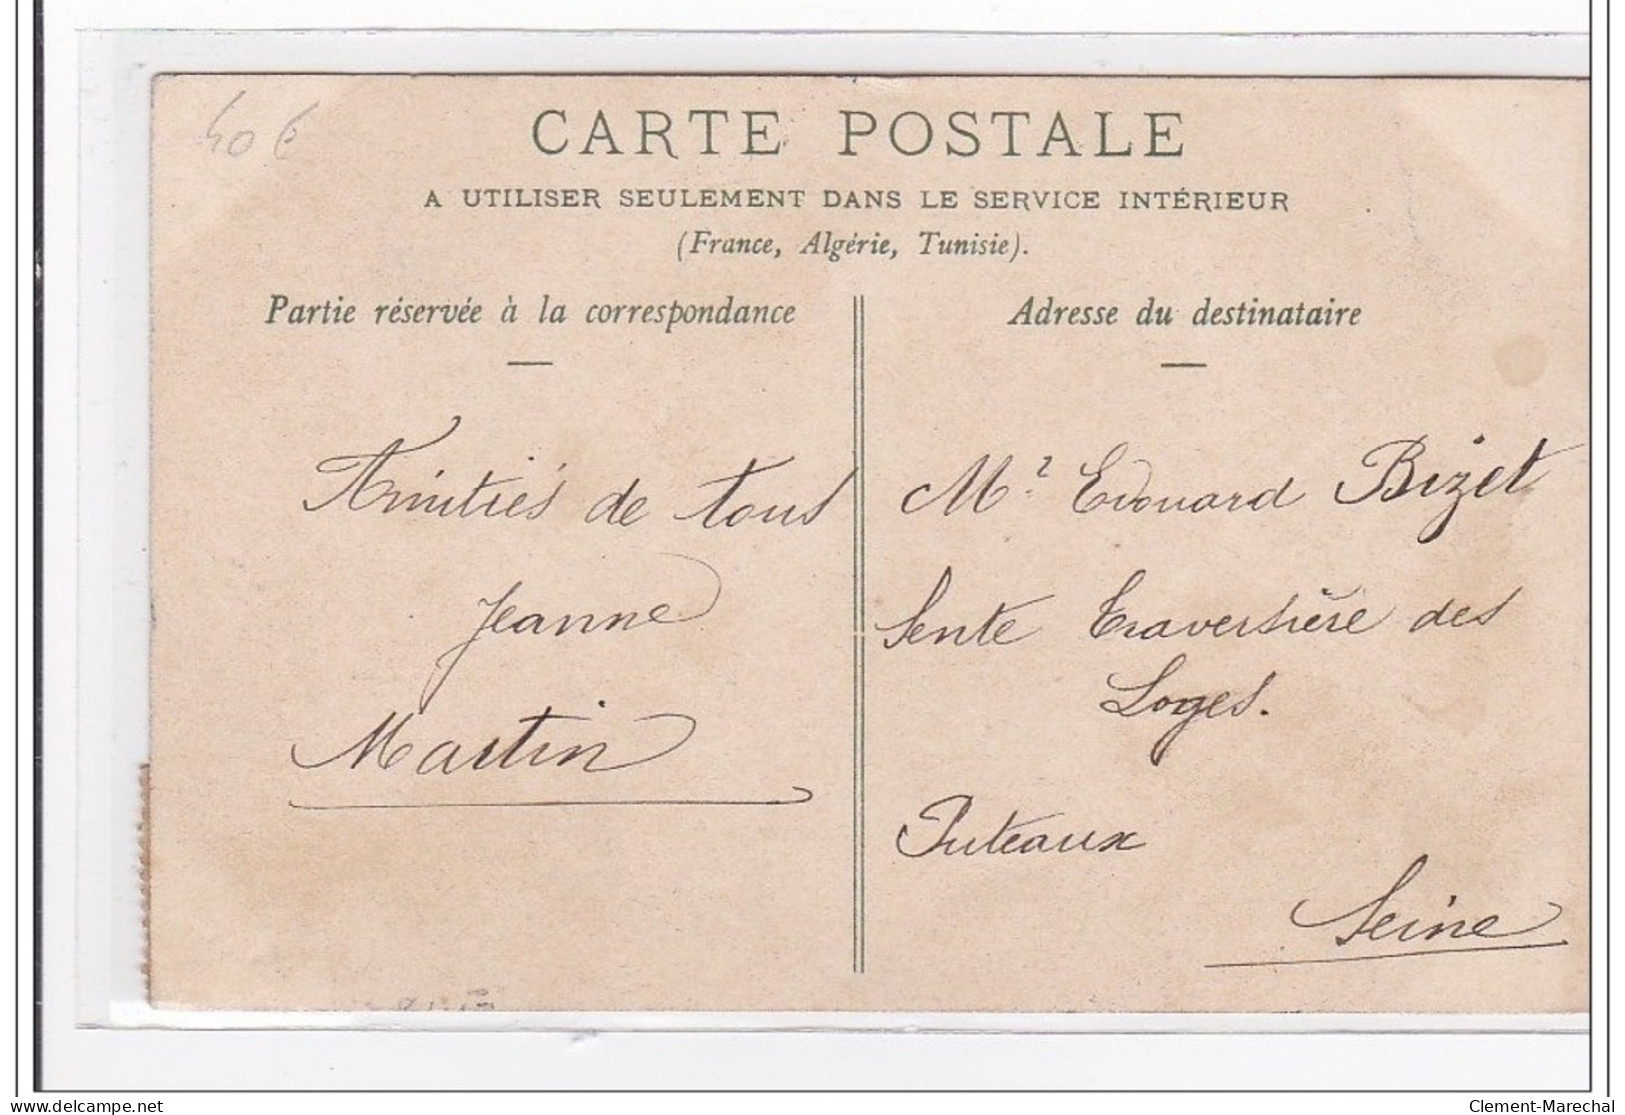 40 €
CARTE POSTALE
A UTILISER SEULEMENT DANS LE SERVICE INTÉRIEUR
(France, Algérie, Tunisie).
Partie réservée à la correspondance
Adresse du destinataire
Amitiés de tous
Jeanne
Martin
Mr Edouard Bizet
Sente Traversière des
Loges.
Puteaux
Seine
delcampe.net
Clement-Marechal